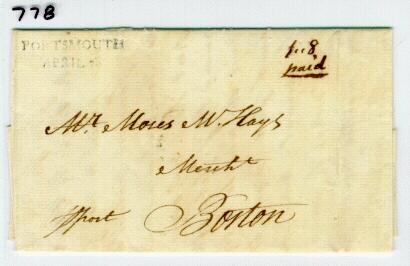 778
PORTSMOUTH
APRIL
8
paid
Mr. Moses M. Hays
Mercht
post
Boston